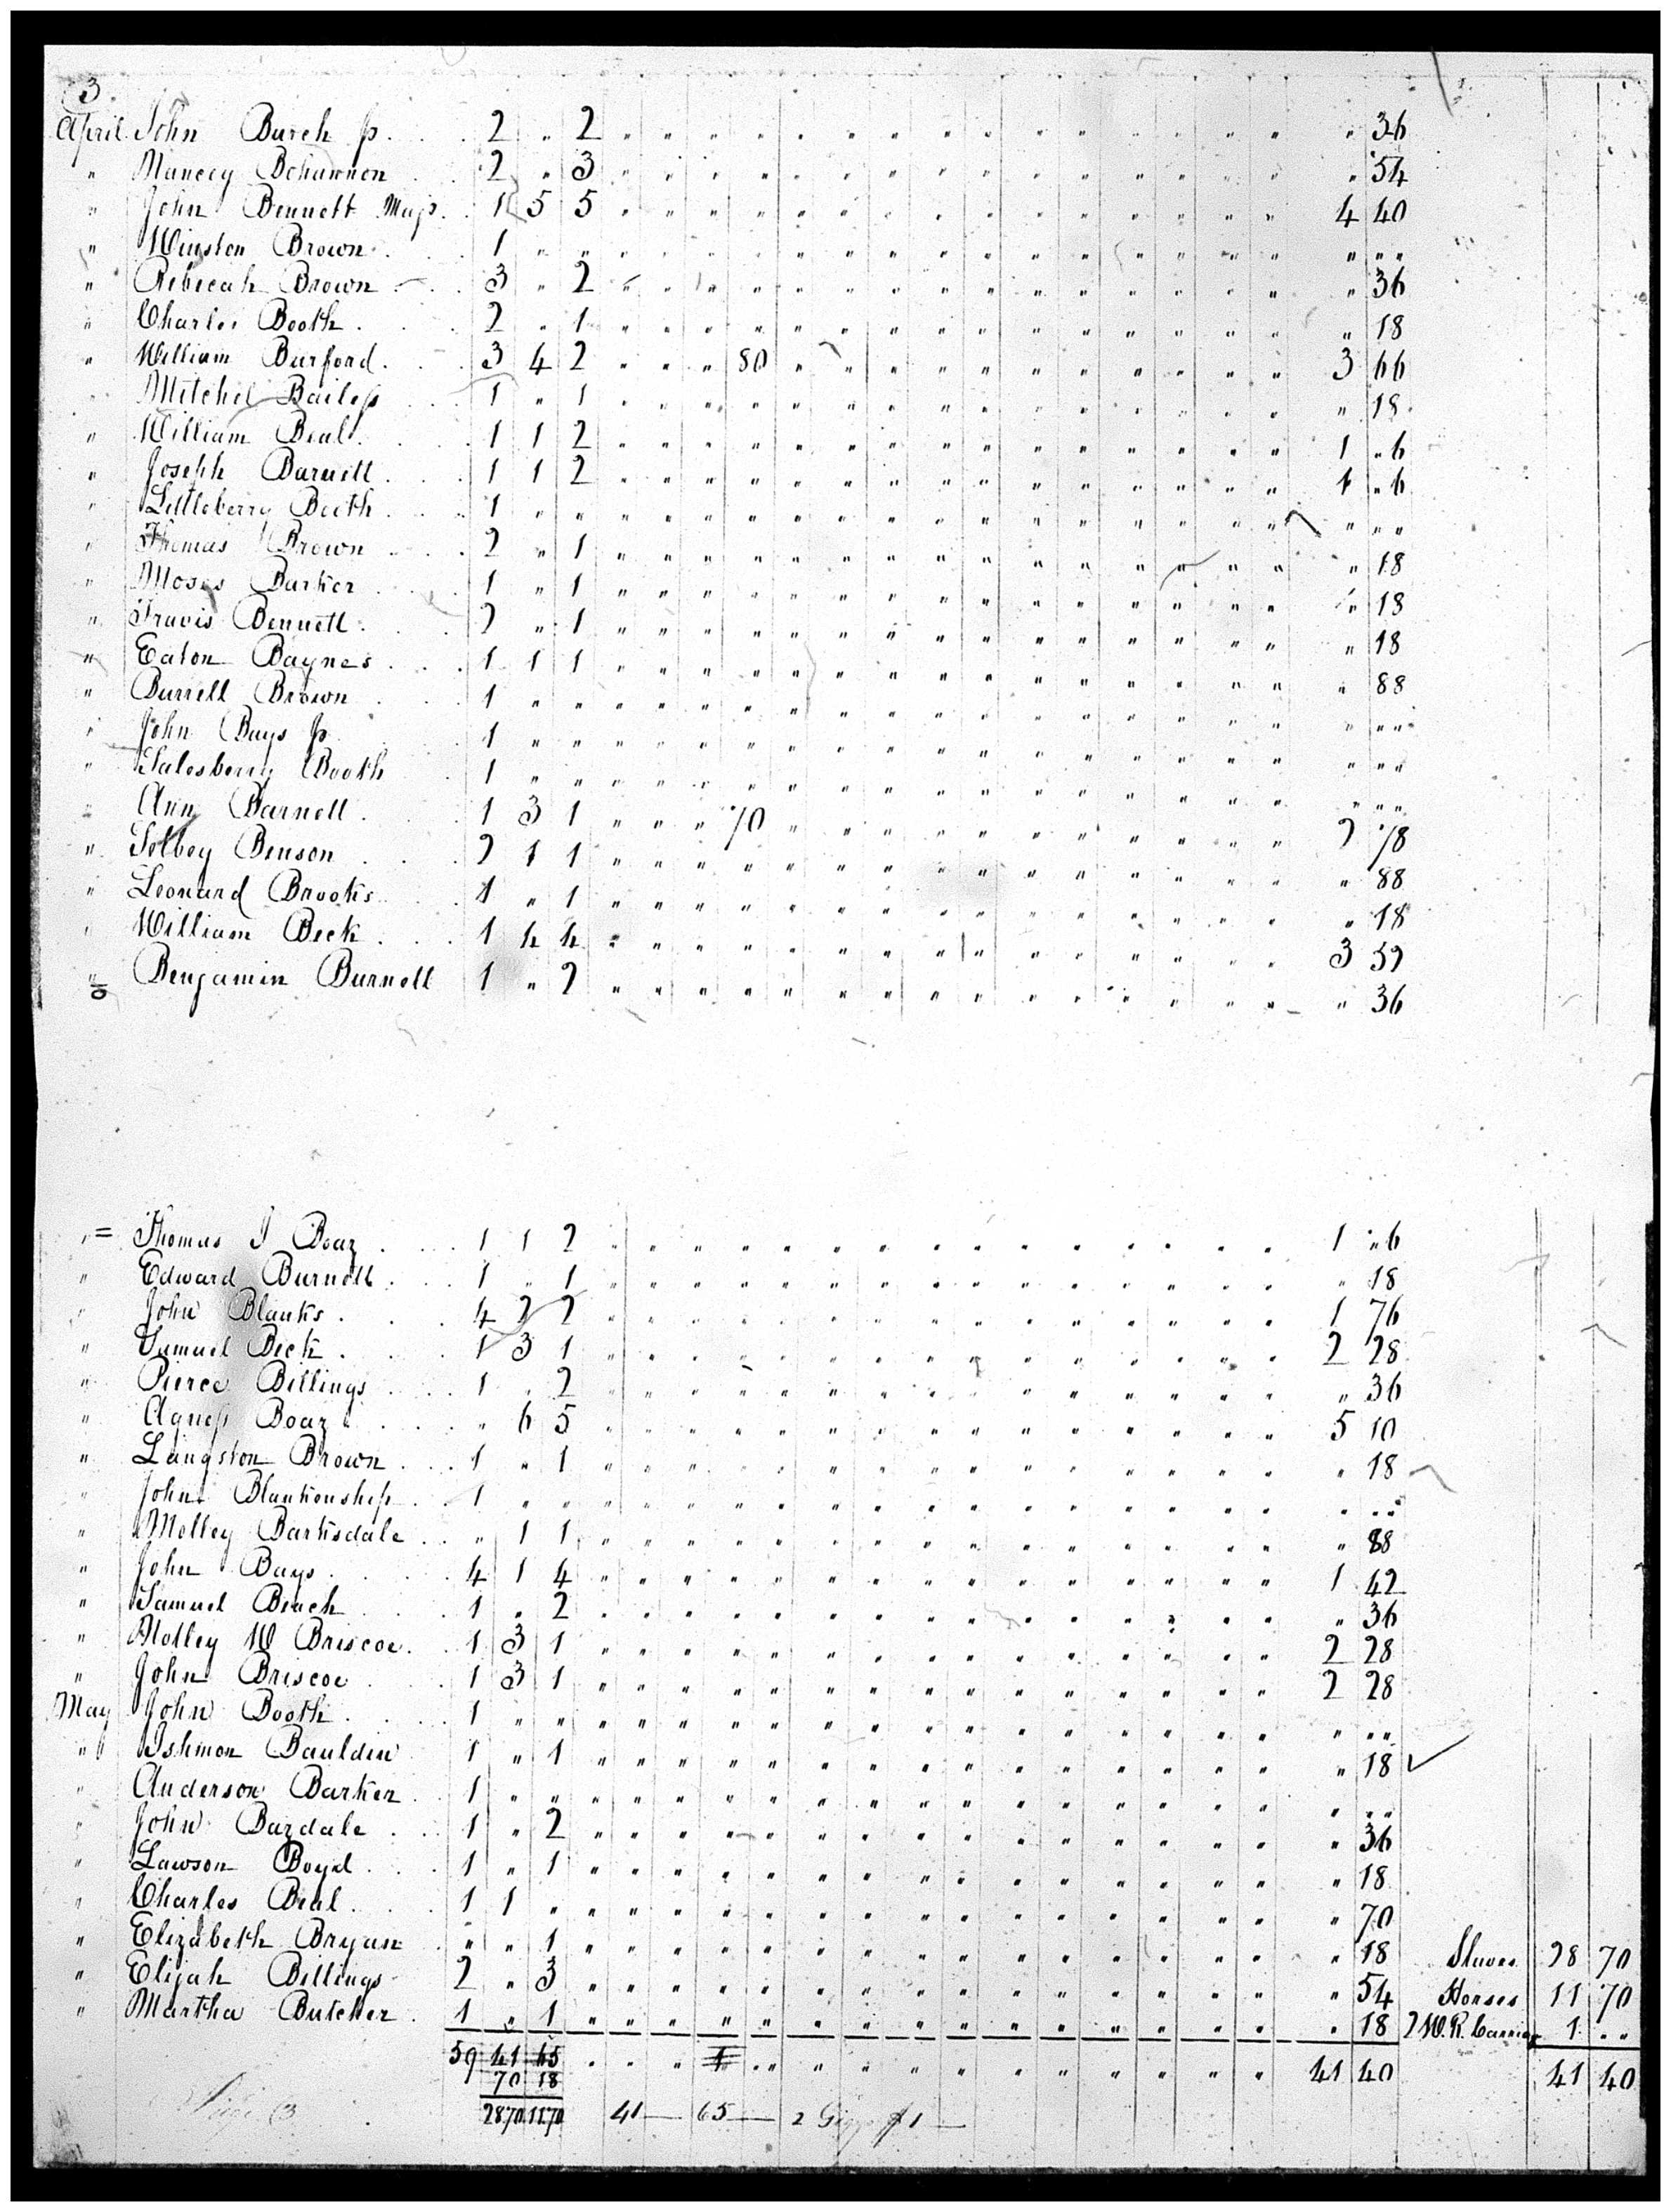 3
April John Burch jr. 2 " 2 " " " " " " " " " " " " " " " " 36
" Mancey Bohannon 2 " 3 " " " " " " " " " " " " " " " " 54
" John Bennett Majr. 1 5 5 " " " " " " " " " " " " " " " 4 40
" Winston Brown 1 " " " " " " " " " " " " " " " " " " " "
" Rebecah Brown 3 " 2 " " " " " " " " " " " " " " " " 36
" Charles Booth 2 " 1 " " " " " " " " " " " " " " " " 18
" William Burford 3 4 2 " " " 80 " " " " " " " " " " " 3 66
" Mitchel Bailess 1 " 1 " " " " " " " " " " " " " " " " 18
" William Beal 1 1 2 " " " " " " " " " " " " " " " 1 "6
" Joseph Barnett 1 1 2 " " " " " " " " " " " " " " " 1 "6
" Littleberry Booth 1 " " " " " " " " " " " " " " " " " " " "
" Thomas Brown 2 " 1 " " " " " " " " " " " " " " " " 18
" Moses Barker 1 " 1 " " " " " " " " " " " " " " " " 18
" Travis Bennett 2 " 1 " " " " " " " " " " " " " " " " 18
" Eaton Baynes 1 1 1 " " " " " " " " " " " " " " " " 88
" Burrell Brown 1 " " " " " " " " " " " " " " " " " " " "
" John Bays jr 1 " " " " " " " " " " " " " " " " " " " "
" Salesberry Booth 1 " " " " " " " " " " " " " " " " " " " "
" Ann Barnett 1 3 1 " " " 70 " " " " " " " " " " " 2 78
" Selbey Benson 2 1 1 " " " " " " " " " " " " " " " " 88
" Leonard Brooks 1 " 1 " " " " " " " " " " " " " " " " 18
" William Beck 1 4 4 " " " " " " " " " " " " " " " 3 52
" Benjamin Burnett 1 " 2 " " " " " " " " " " " " " " " " 36
" Thomas J Boaz 1 1 2 " " " " " " " " " " " " " " " 1 "6
" Edward Burnett 1 " 1 " " " " " " " " " " " " " " " " 18
" John Blanks 4 2 2 " " " " " " " " " " " " " " " 1 76
" Samuel Beck 1 3 1 " " " " " " " " " " " " " " " 2 28
" Pierce Billings 1 " 2 " " " " " " " " " " " " " " " " 36
" Agness Boaz " 6 5 " " " " " " " " " " " " " " " 5 10
" Langston Brown 1 " 1 " " " " " " " " " " " " " " " " 18
" John Blankenship 1 " " " " " " " " " " " " " " " " " " " "
" Molley Barksdale " 1 1 " " " " " " " " " " " " " " " " 88
" John Bays 4 1 4 " " " " " " " " " " " " " " " 1 42
" Samuel Beach 1 " 2 " " " " " " " " " " " " " " " " 36
" Notley W Briscoe 1 3 1 " " " " " " " " " " " " " " " 2 28
" John Briscoe 1 3 1 " " " " " " " " " " " " " " " 2 28
May John Booth 1 " " " " " " " " " " " " " " " " " " " "
" Ishmon Bauldin 1 " 1 " " " " " " " " " " " " " " " " 18 ✓
" Anderson Barker 1 " " " " " " " " " " " " " " " " " " " "
" John Bazdale 1 " 2 " " " " " " " " " " " " " " " " 36
" Lawson Boyd 1 " 1 " " " " " " " " " " " " " " " " 18
" Charles Beal 1 1 " " " " " " " " " " " " " " " " " 70
" Elizabeth Bryan " " 1 " " " " " " " " " " " " " " " " 18 Slaves 28 70
" Elijah Billings 2 " 3 " " " " " " " " " " " " " " " " 54 Horses 11 70
" Martha Butcher 1 " 1 " " " " " " " " " " " " " " " " 18 2 W. R. Carriag 1 " "
59 41 65 " " " 1 " " " " " " " " " " " " 41 40 41 40
70 18
Page 3 2870 1170 41— 65— 2 Giggs $1—